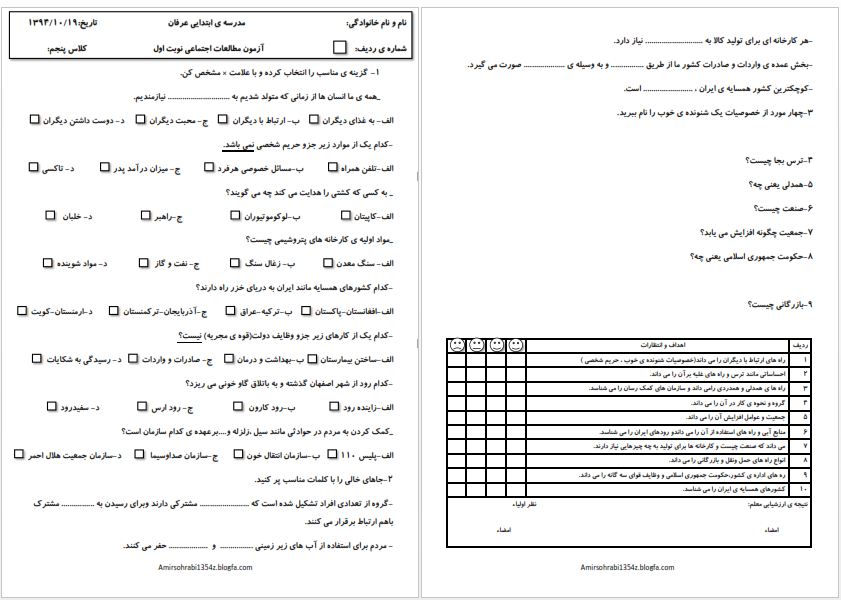 نام و نام خانوادگی: مدرسه ی ابتدایی عرفان تاریخ:۱۳۹۴/۱۰/۱۹
شماره ی ردیف: آزمون مطالعات اجتماعی نوبت اول کلاس پنجم:
۱- گزینه ی مناسب را انتخاب کرده و با علامت × مشخص کن.
_همه ی ما انسان ها از زمانی که متولد شدیم به .............................. نیازمندیم.
الف- به غذای دیگران ب- ارتباط با دیگران ج- محبت دیگران د- دوست داشتن دیگران
-کدام یک از موارد زیر جزو حریم شخصی نمی باشد.
الف-تلفن همراه ب-مسائل خصوصی هرفرد ج- میزان درآمد پدر د- تاکسی
_ به کسی که کشتی را هدایت می کند چه می گویند؟
الف-کاپیتان ب-لوکوموتیوران ج-راهبر د- خلبان
_مواد اولیه ی کارخانه های پتروشیمی چیست؟
الف- سنگ معدن ب- زغال سنگ ج- نفت و گاز د- مواد شوینده
-کدام کشورهای همسایه مانند ایران به دریای خزر راه دارند؟
الف-افغانستان-پاکستان ب-ترکیه-عراق ج-آذربایجان-ترکمنستان د-ارمنستان-کویت
-کدام یک از کارهای زیر جزو وظایف دولت(قوه ی مجریه) نیست؟
الف-ساختن بیمارستان ب-بهداشت و درمان ج- صادرات و واردات د- رسیدگی به شکایات
-کدام رود از شهر اصفهان گذشته و به باتلاق گاو خونی می ریزد؟
الف-زاینده رود ب-رود کارون ج- رود ارس د- سفیدرود
_کمک کردن به مردم در حوادثی مانند سیل ،زلزله و....برعهده ی کدام سازمان است؟
الف-پلیس ۱۱۰ ب-سازمان انتقال خون ج-سازمان صداوسیما د-سازمان جمعیت هلال احمر
۲-جاهای خالی را با کلمات مناسب پر کنید.
-گروه از تعدادی افراد تشکیل شده است که ........................ مشترکی دارند وبرای رسیدن به ................ مشترک
باهم ارتباط برقرار می کنند.
- مردم برای استفاده از آب های زیر زمینی ................ و .................... حفر می کنند.
Amirsohrabi1354z.blogfa.com
-هر کارخانه ای برای تولید کالا به ............................ نیاز دارد.
-بخش عمده ی واردات و صادرات کشور ما از طریق ................ و به وسیله ی .................... صورت می گیرد.
-کوچکترین کشور همسایه ی ایران ، ........................ است.
۳-چهار مورد از خصوصیات یک شنونده ی خوب را نام ببرید.
۴-ترس بجا چیست؟
۵-همدلی یعنی چه؟
۶-صنعت چیست؟
۷-جمعیت چگونه افزایش می یابد؟
۸-حکومت جمهوری اسلامی یعنی چه؟
۹-بازرگانی چیست؟
ردیف اهداف و انتظارات
۱ راه های ارتباط با دیگران را می داند(خصوصیات شنونده ی خوب ، حریم شخصی )
۲ احساساتی مانند ترس و راه های غلبه برآن را می داند.
۳ راه ها ی همدلی و همدردی رامی داند و سازمان های کمک رسان را می شناسد.
۴ گروه و نحوه ی کار در آن را می داند.
۵ جمعیت و عوامل افزایش آن را می داند.
۶ منابع آبی و راه های استفاده از آن را می داندو رودهای ایران را می شناسد.
۷ می داند که صنعت چیست و کارخانه ها برای تولید به چه چیزهایی نیاز دارند.
۸ انواع راه های حمل ونقل و بازرگانی را می داند.
۹ ره های اداره ی کشور،حکومت جمهوری اسلامی و وظایف قوای سه گانه را می داند.
۱۰ کشورهای همسایه ی ایران را می شناسد.
نتیجه ی ارزشیابی معلم: نظر اولیاء
امضاء امضاء
Amirsohrabi1354z.blogfa.com